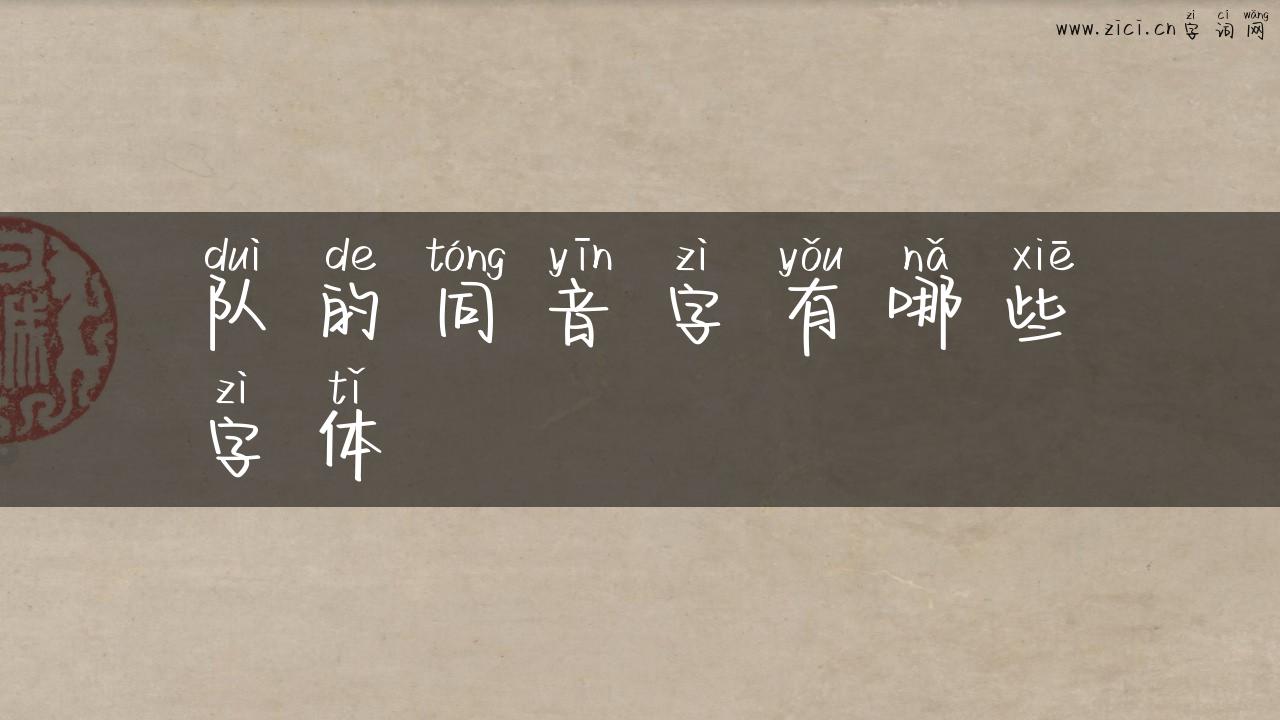 zì cí wǎng
www.zici.cn 字词网
duì de tóng yīn zì yǒu nǎ xiē
队的同音字有哪些
zì tǐ
字体